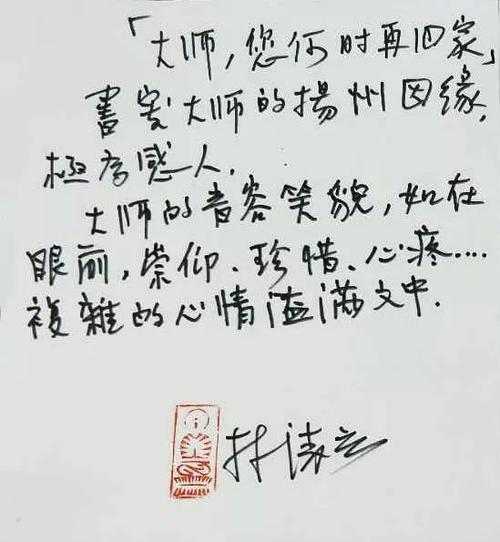 「大师,您何时再回家」
書寫大师的揚州因缘,
極为感人.
大师的音容笑貌,如在
眼前,崇仰、珍惜、心疼....
複雜的心情溢满文中.
林清玄